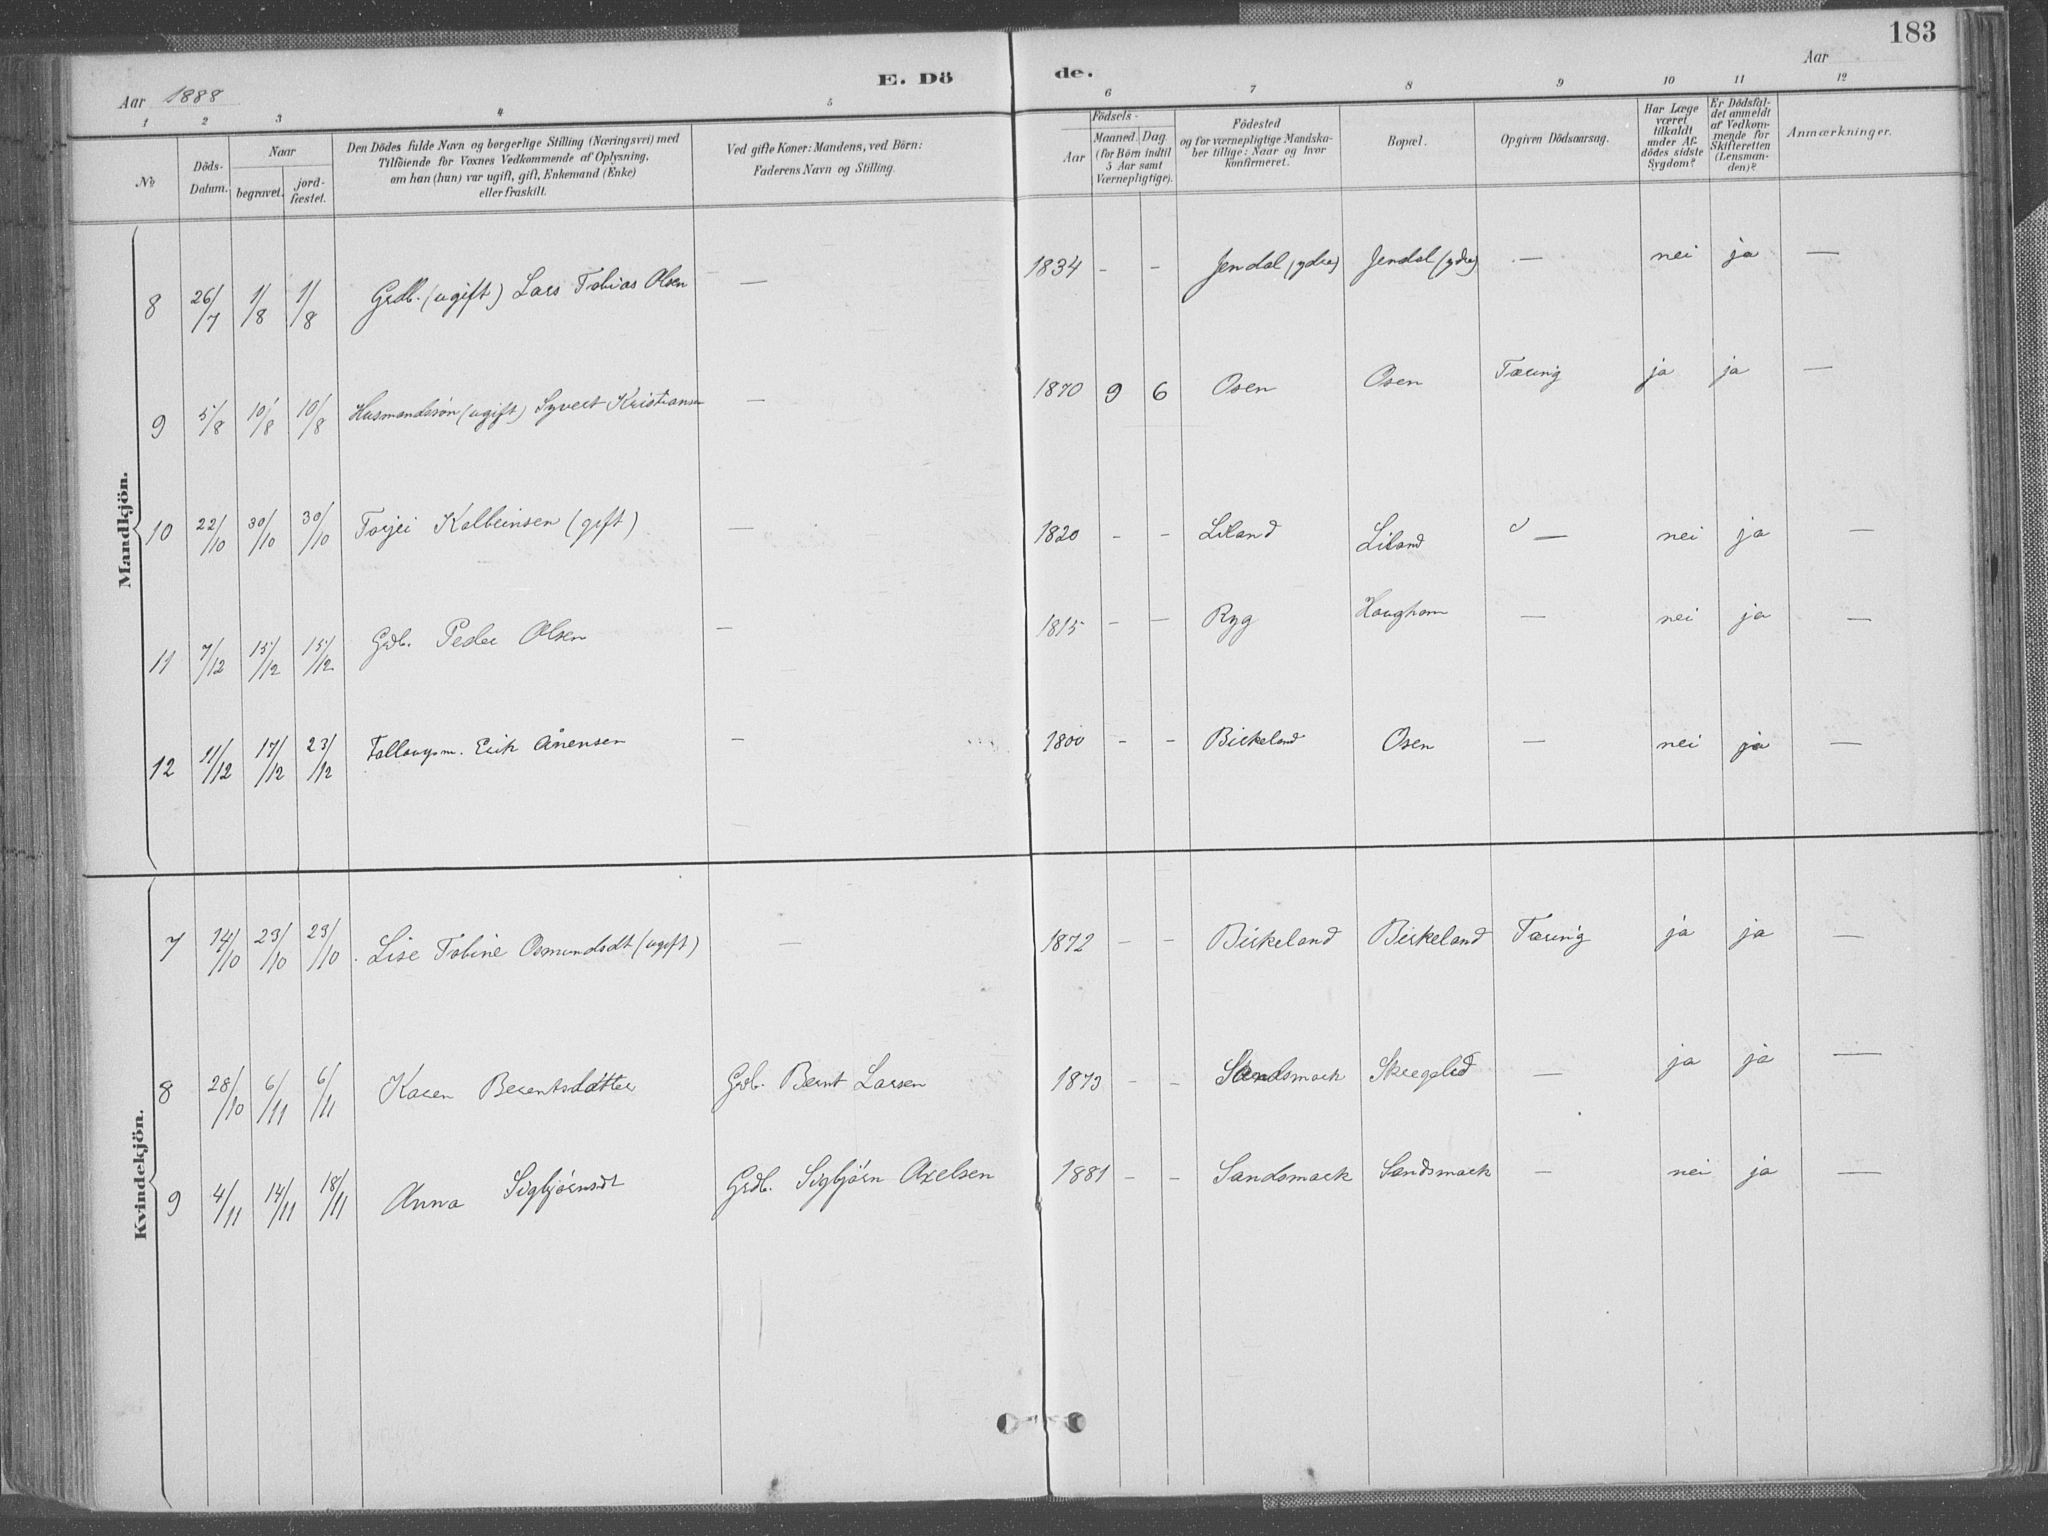 183
E. Dö de.
Aar 1888
Aar
1 2 3 4 5 6 7 8 9 10 11 12
No
Döds-Datum.
Naar
begravet.
jord-fæstet.
Den Dödes fulde Navn og borgerlige Stilling (Næringsvei) med
Tilföiende for Voxnes Vedkommende af Oplysning,
om han (hun) var ugift, gift, Enkemand (Enke)
eller fraskilt.
Ved gifte Koner: Mandens, ved Börn:
Faderens Navn og Stilling.
Födsels-
Aar
Maaned. Dag.
(for Börn indtil
5 Aar samt
Værnepligtige).
Födested
og for værnepligtige Mandska-
ber tillige: Naar og hvor
konfirmeret.
Bopæl.
Opgiven Dödsaarsag.
Har Læge
været
tilkaldt
under Af-
dödes sidste
Sygdom?
Er Dödsfal-
det anmeldt
af Vedkom-
mende for
Skifteretten
(Lensman-
den)?
Anmærkninger.
Mandkjön.
8 26/7 1/8 1/8 Grdb. (ugift) Lars Tobias Olsen — 1834 - - Jendal (ydre) Jendal (ydre) — nei ja —
9 5/8 10/8 10/8 Husmandssön (ugift) Syvert Kristiansen — 1870 9 6 Osen Osen Tæring ja ja —
10 22/10 30/10 30/10 Torjei Kolbeinsen (gift) — 1820 - - Liland Liland — nei ja —
11 7/12 15/12 15/12 Grdb. Peder Olsen — 1815 - - Ryg Haugham — nei ja —
12 11/12 17/12 23/12 Erik Ånensen — 1800 - - Birkeland Osen — nei ja —
Kvindekjön.
7 14/10 23/10 23/10 Lise Tobine Osmundsdt (ugift) — 1872 - - Birkeland Birkeland Tæring ja ja —
8 28/10 6/11 6/11 Karen Berentsdatter Grdb. Bernt Larsen 1873 - - Sandsmark Skregelid — ja ja —
9 4/11 14/11 18/11 Anna Sigbjørnsdt Grdb. Sigbjørn Axelsen 1881 - - Sandsmark Sandsmark — nei ja —